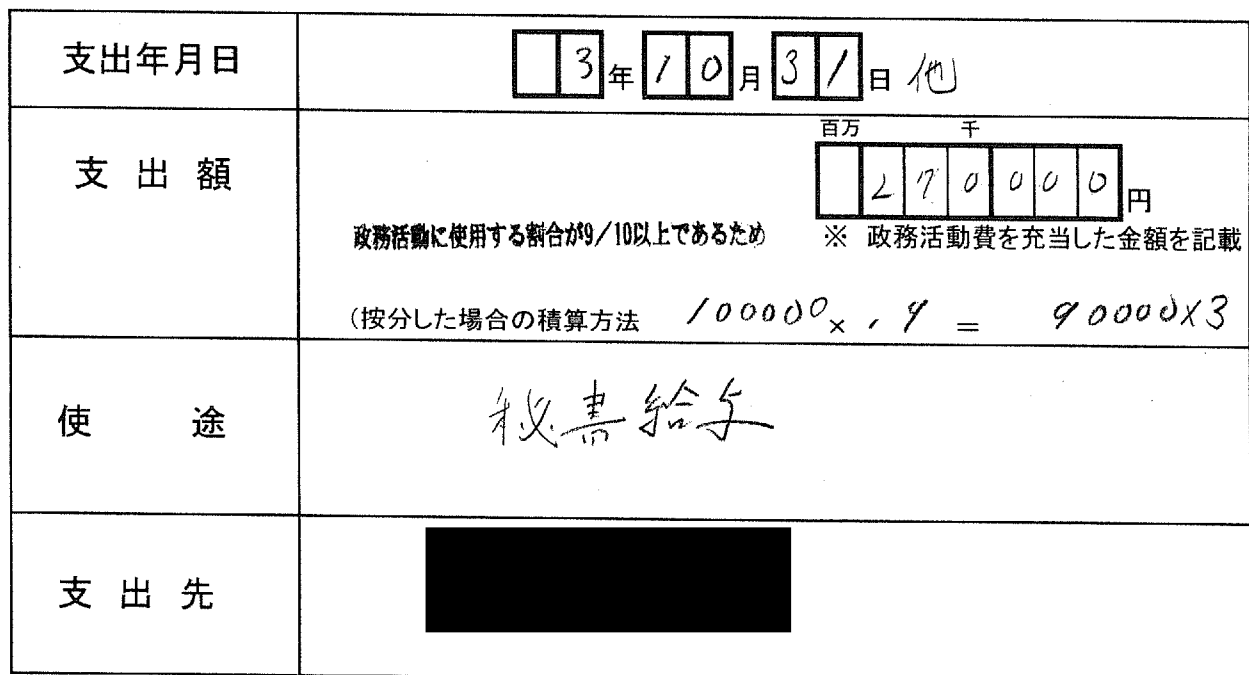 支出年月日 3年10月31日 他
百万 千
支出額 270000円
政務活動に使用する割合が9/10以上であるため ※ 政務活動費を充当した金額を記載
(按分した場合の積算方法 100000×.9= 90000×3
使途 秘書給与
支出先